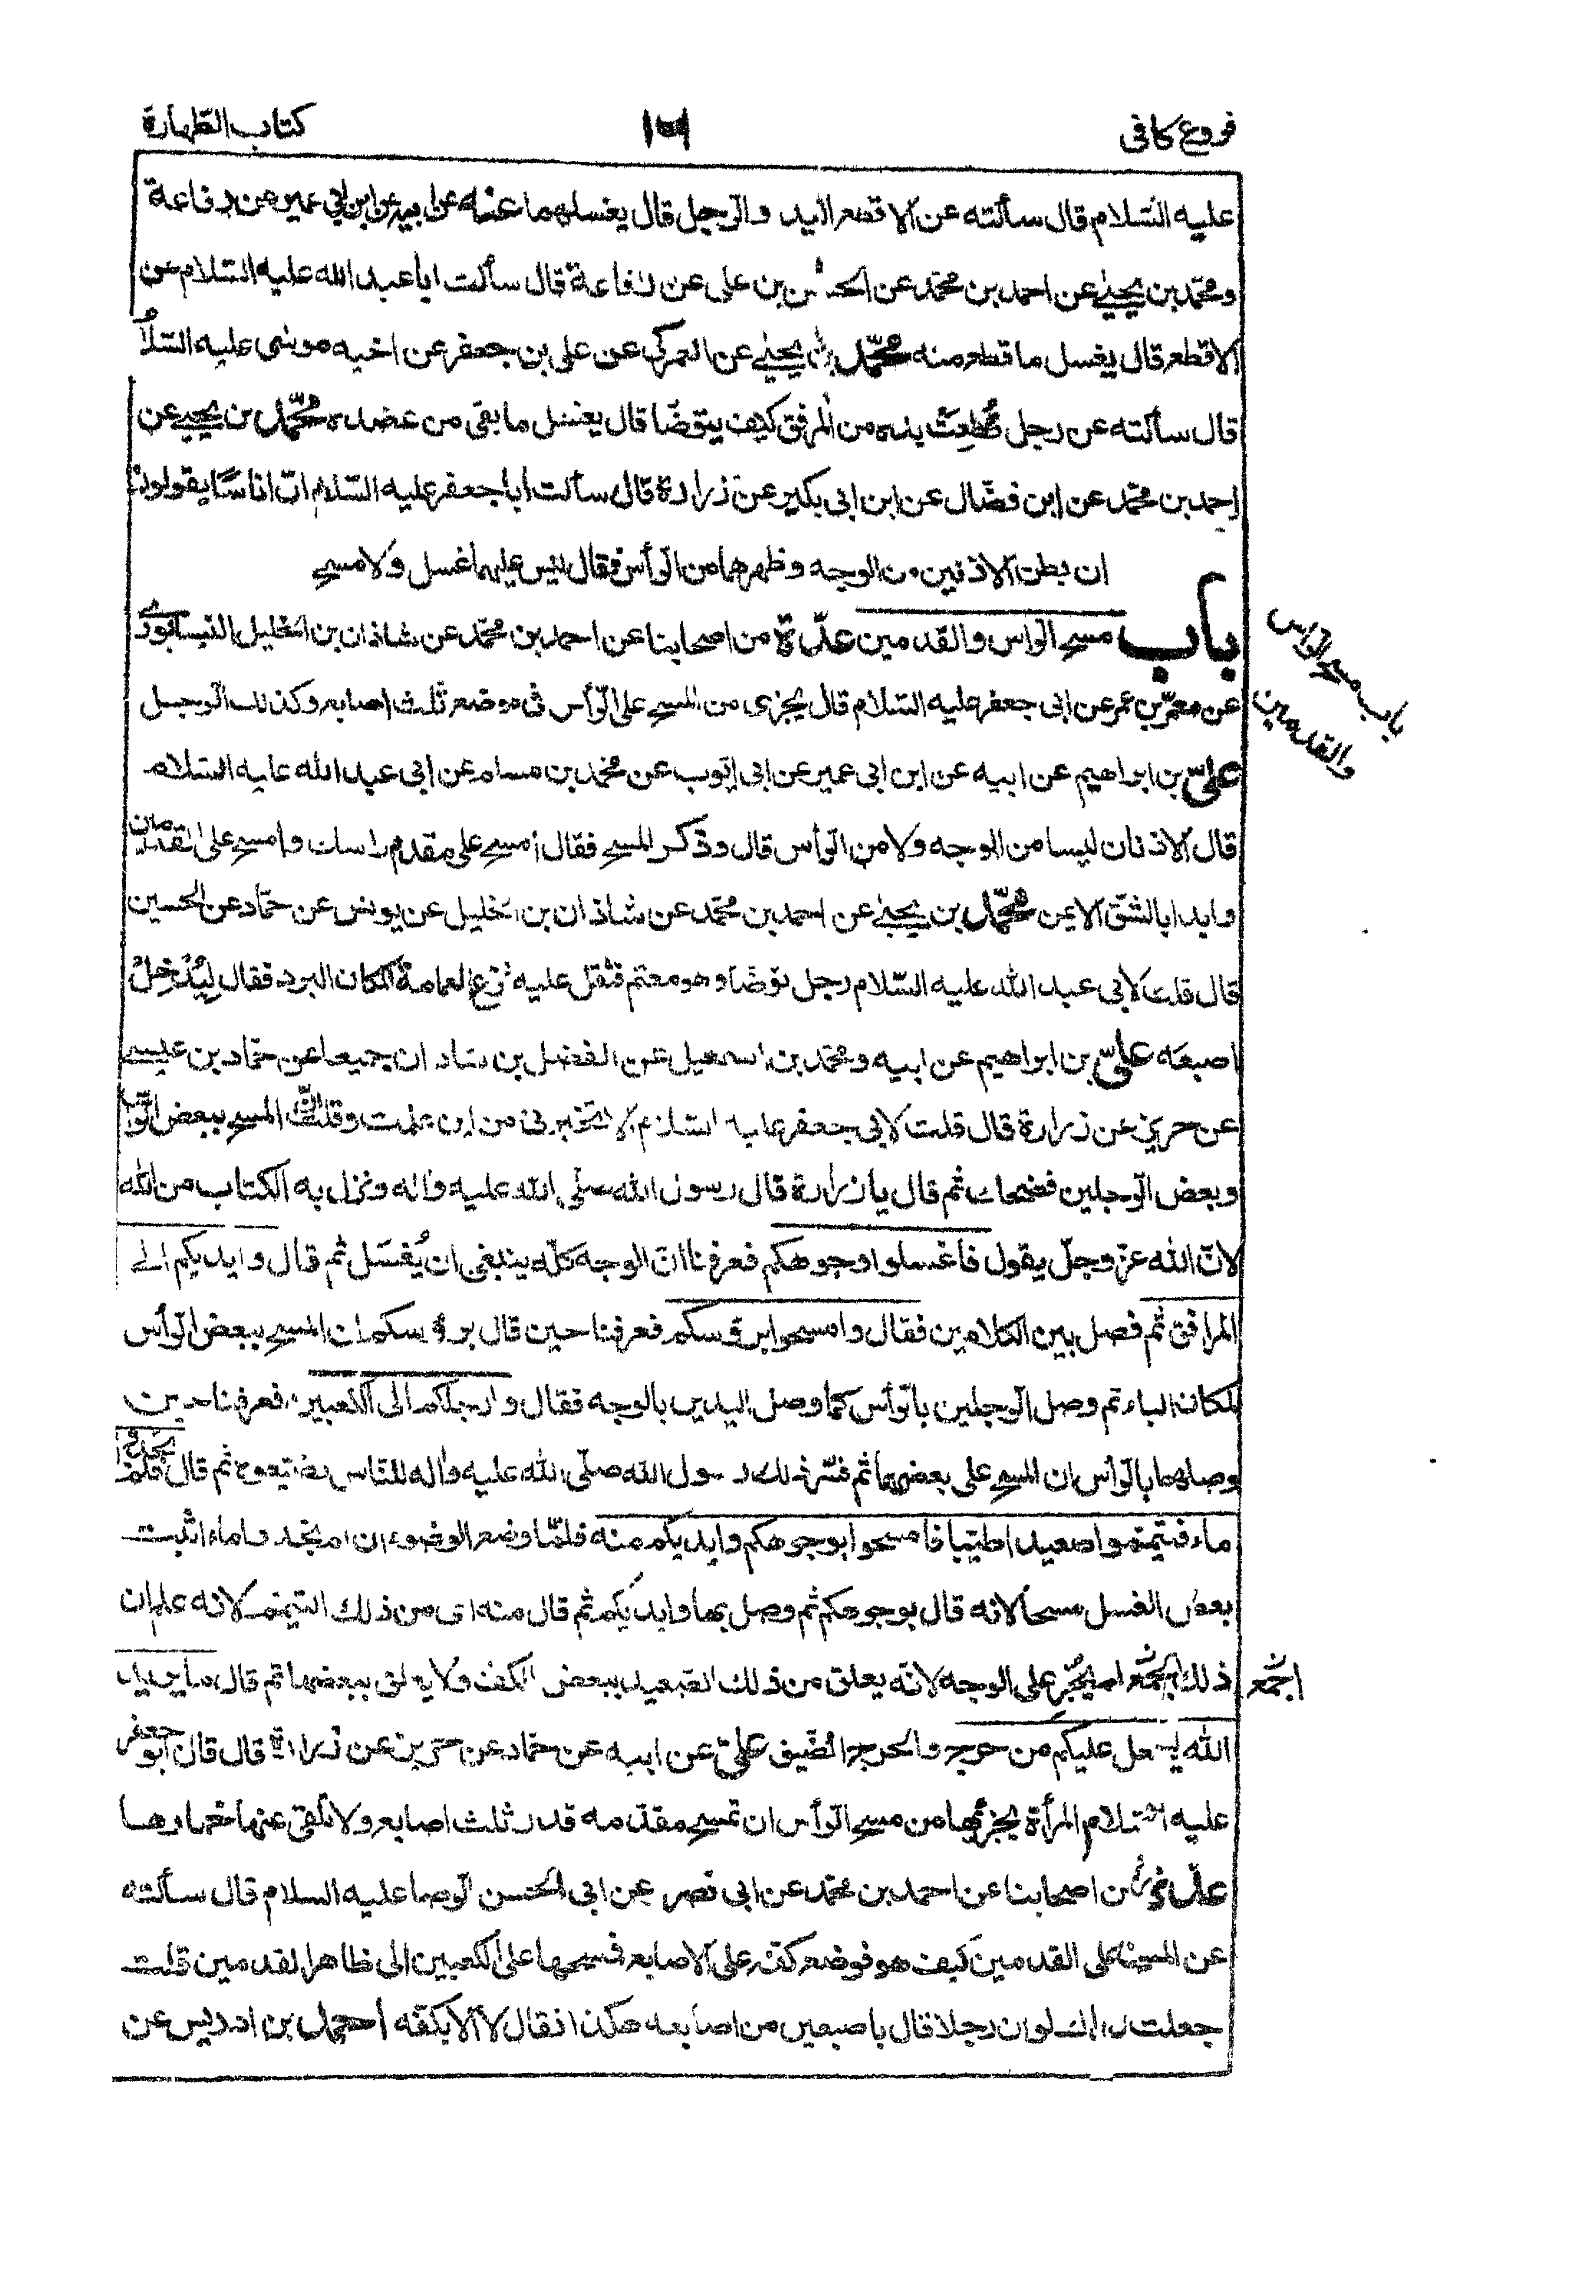 فروع كافى
كتاب الطهارة
عليه السّلام قال سألته عن الاقطع اليد والرّجل قال يغسلهما عنه عن ابيه عن ابن ابى عمير عن رفاعة
ومحمّد بن يحيى عن احمد بن محمّد عن الحسن بن على عن رفاعة قال سألت ابا عبد الله عليه السّلام عن
الاقطع قال يغسل ما قطع منه محمّد بن يحيى عن العمركى عن على بن جعفر عن اخيه موسى عليه السّلا
قال سألته عن رجل قُطِعَتْ يده من المرفق كيف يتوضّا قال يغسل ما بقى من عضده محمّد بن يحيى عن
احمد بن محمّد عن ابن فضّال عن ابن ابى بكير عن زرارة قال سألت ابا جعفر عليه السّلام انّ اناسًا يقولون
ان بطن الاذنين من الوجه وظهرهما من الرّأس فقال ليس عليهما غسل ولا مسح
باب مسح الرّاس والقدمين عدّة من اصحابنا عن احمد بن محمّد عن شاذان بن الخليل النيسابورى
عن معمّر بن عمر عن ابى جعفر عليه السّلام قال يجزى من المسح على الرّأس فى موضع ثلث اصابع وكذلك الرّجل
علىّ بن ابراهيم عن ابيه عن ابن ابى عمير عن ابى ايّوب عن محمد بن مسلم عن ابى عبد الله عليه السّلام
قال الاذنان ليسا من الوجه ولا من الرّأس قال وذكر المسح فقال امسح على مقدم راسك وامسح على القدمين
وابدا بالشقّ الايمن محمّد بن يحيى عن احمد بن محمّد عن شاذان بن الخليل عن يونس عن حمّاد عن الحسين
قال قلت لابى عبد الله عليه السّلام رجل توضّا وهو معتم فثقل عليه نزع العمامة لمكان البرد فقال لِيُدْخِلْ
اصبعَه علىّ بن ابراهيم عن ابيه ومحمّد بن اسمعيل عن الفضل بن شاذان جميعا عن حمّاد بن عيسى
عن حريز عن زرارة قال قلت لابى جعفر عليه السّلام الا تخبرنى من اين علمت وقلت انّ المسح ببعض الرّأس
وبعض الرّجلين فضحك ثم قال يا زرارة قال رسول الله صلّى الله عليه واله ونزل به الكتاب من الله
لانّ الله عزّ وجلّ يقول فاغسلوا وجوهكم فعرفنا انّ الوجه كلّه ينبغى ان يُغسَل ثم قال وايديكم الى
المرافق ثم فصل بين الكلامين فقال وامسحوا برؤسكم فعرفنا حين قال برؤسكم ان المسح ببعض الرّأس
لمكان الباء ثم وصل الرّجلين بالرّأس كما وصل اليدين بالوجه فقال وارجلكم الى الكعبين فعرفنا حين
وصلهما بالرّأس ان المسح على بعضهما ثم فسّر ذلك رسول الله صلّى الله عليه واله للنّاس فضيّعوه ثم قال فلم تجدوا
ماء فتيمّموا صعيدا طيّبا فامسحوا بوجوهكم وايديكم منه فلمّا وضع الوضوء ان لم يجد الماء اثبت
بعض الغسل مسحا لانه قال بوجوهكم ثم وصل بها وايديكم ثم قال منه اى من ذلك التيمّم لانه علم ان
ذلك اجمع لم يُجْرِ على الوجه لانّه يعلق من ذلك الصّعيد ببعض الكف ولا يعلق ببعضها ثم قال ما يريد
الله ليجعل عليكم من حرج والحرج الضّيق علىّ عن ابيه عن حمّاد عن حريز عن زرارة قال قال ابو جعفر
عليه السّلام المرأة يجزيها من مسح الرّأس ان تمسح مقدّمه قدر ثلث اصابع ولا تلقى عنها خمارها
عدّة من اصحابنا عن احمد بن محمّد عن ابى نصر عن ابى الحسن الرّضا عليه السلام قال سألته
عن المسح على القدمين كيف هو فوضع كفّه على الاصابع فمسحها على الكعبين الى ظاهر القدمين قلت
جعلت فداك لو ان رجلا قال باصبعين من اصابعه هكذا فقال لا الا بكفّه احمد بن ادريس عن
باب مسح الرّاس
والقدمين
اجْمَع